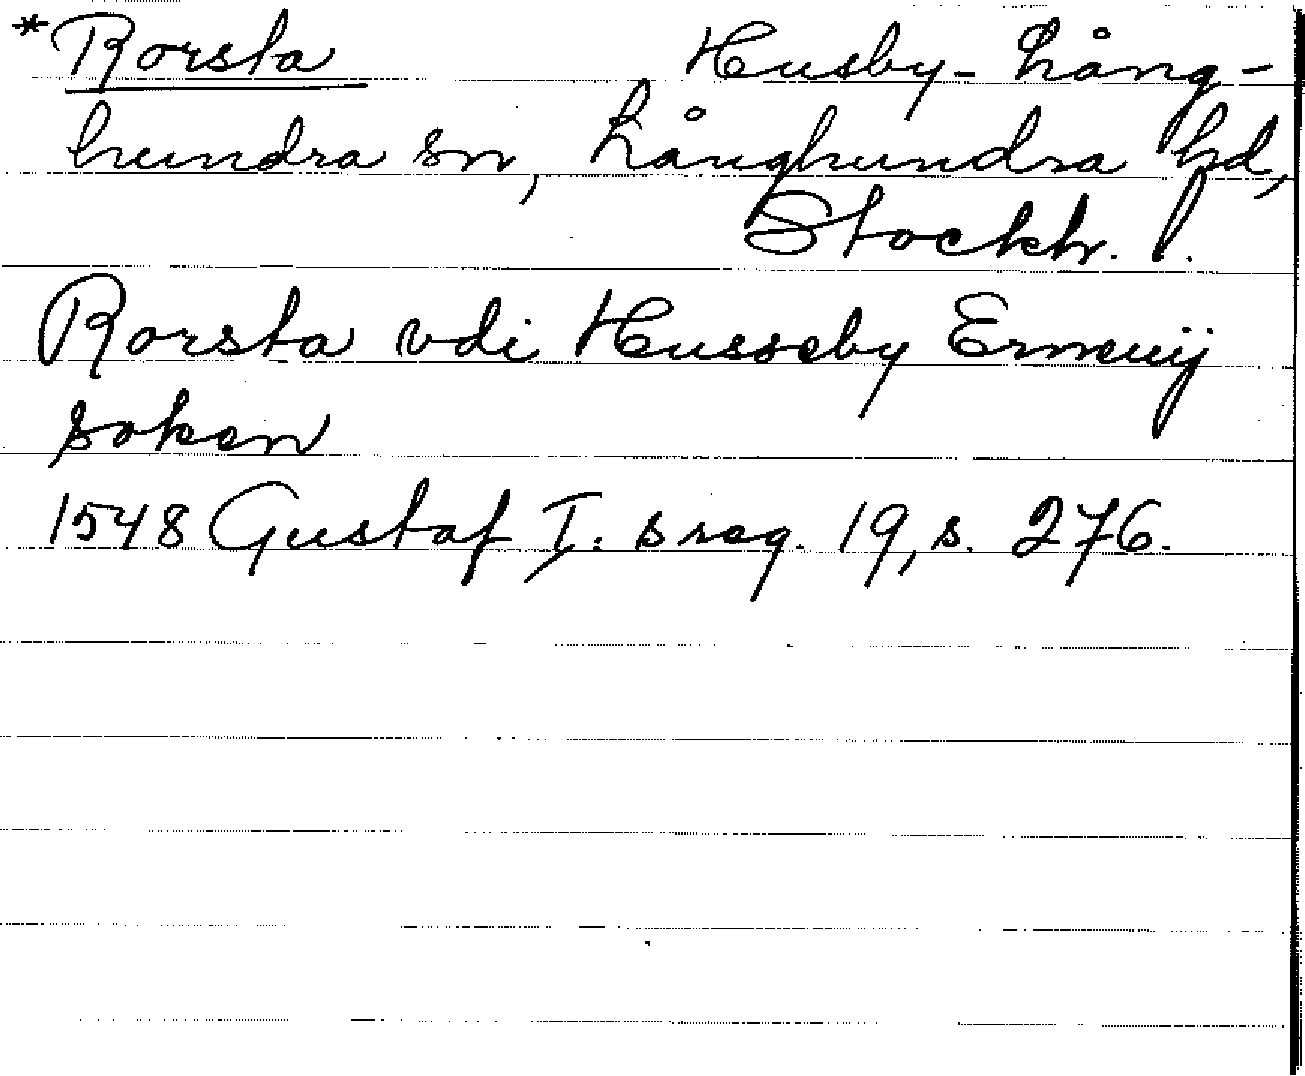 *Rorsta Husby-Lång-
hundra sn, Långhundra hd,
Stockh. l.
Rorsta vdi Husseby Ermeuij
soken
1548 Gustaf I:s reg. 19, s. 276.